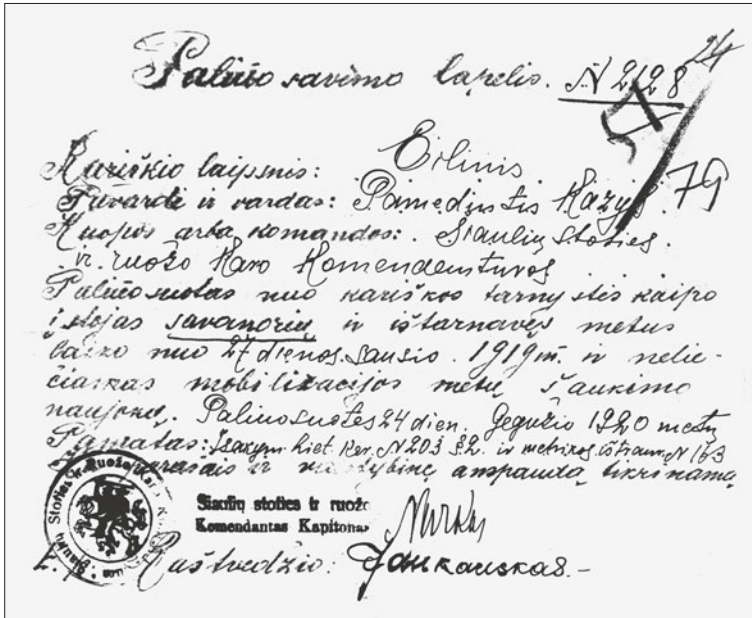 Paliuosavimo lapelis. N 2128
24
79
Kariškio laipsnis: Eilinis
Pavardė ir vardas: Pamedistis Kazys.
Kuopos arba komandos: Siaulių stoties.
ir ruožo Karo Komendantūros
Paliuosuotas nuo kariškos tarnystės kaipo
įstojas savanorių ir ištarnavęs metus
laiko nuo 27 dienos sausio. 1919 m. ir nelie-
čiamas mobilizacijos metų šaukimo
naujokų. Paliuosuotas 24 dien. Gegužio 1920 metų
Pamatas: Isakym. Liet. Ker. N 203 §2. ir metrikos ištrauk. N 163
ir valstybinę anspaudą tikrinama
Siaulių stoties ir ruožo
Komendantas Kapitonas
Raštvedžio: Jankauskas.-